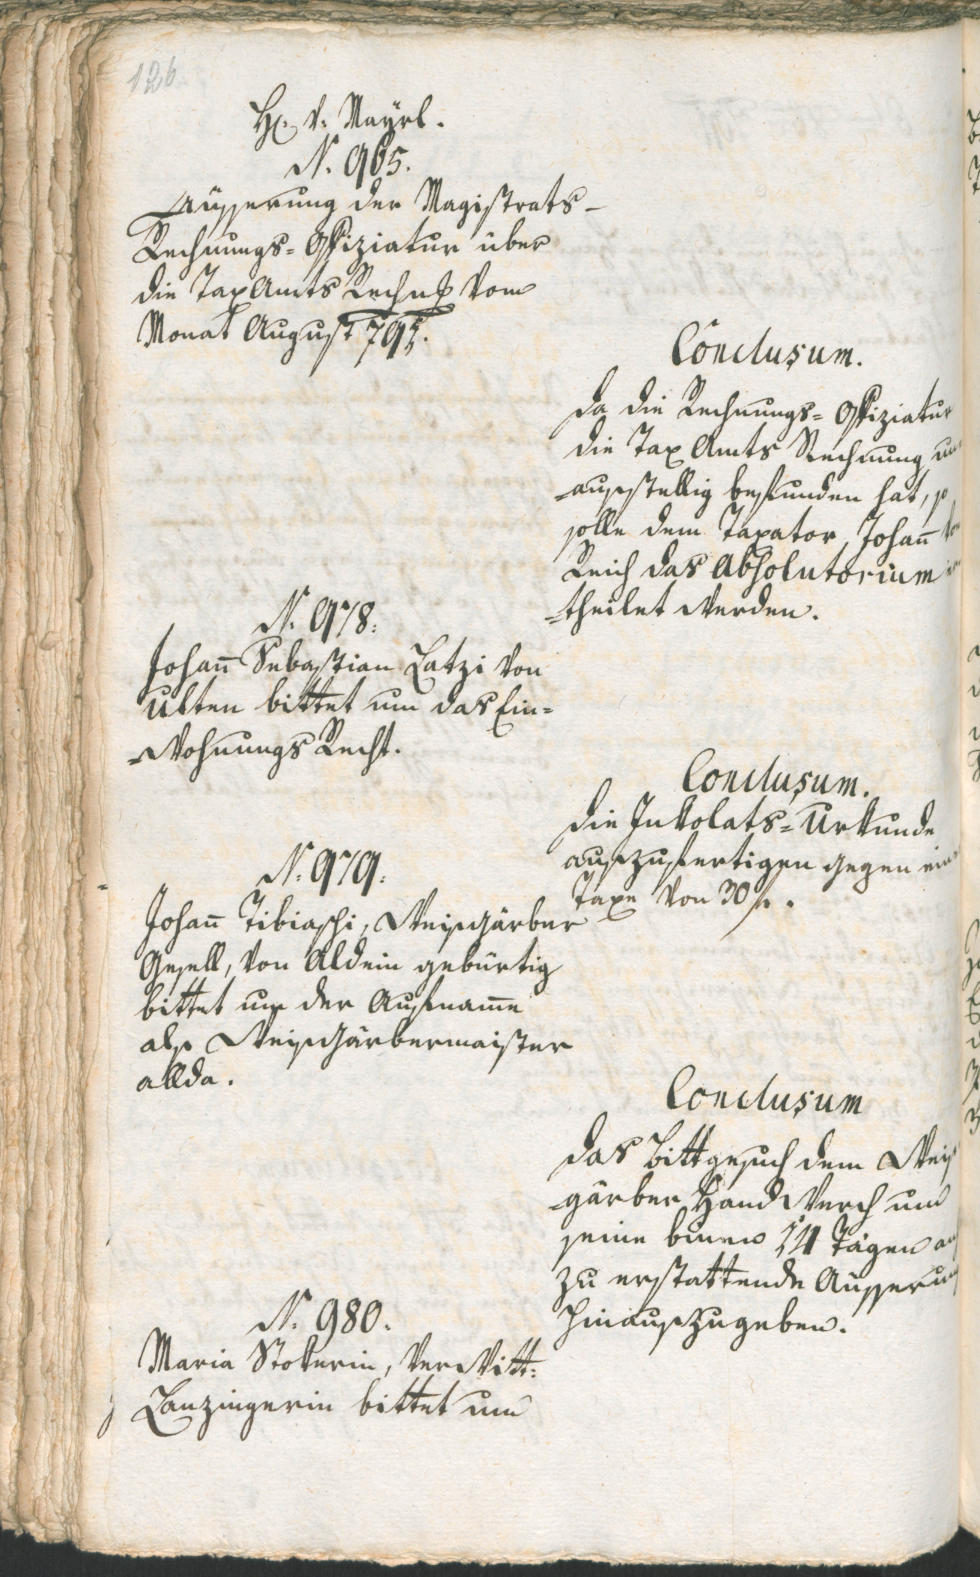 126
H. v. Mayrl.
N. 965.
Äusserung der Magistrats-
Rechnungs-Offiziatur über
die Tax Amts Rechnung vom
Monat August 795.
Conclusum.
da die Rechnungs-Offiziatur
die Tax Amts Rechnung un
ausstellig befunden hat, so
solle dem Taxator Johann
Reich das Absolutorium
theilet werden.
N. 978.
Johann Sebastian Latzi von
Ulten bittet um das Ein-
wohnungs Recht.
Conclusum.
die Inkolats-Urkunde
auszufertigen gegen ein
Taxe von 30 f.
N. 979.
Johann Tibiaschi, Weisgärber
Gesell, von Aldein gebürtig
bittet um der Aufname
als Weisgärbermaister
allda.
Conclusum
das Bittgesuch dem Weis
gärber Handwerch um
seine binen 14 Tägen
zu erstattende Äusserung
hinauszugeben.
N. 980.
Maria Stokerin, verwitt:
Lanzingerin bittet um